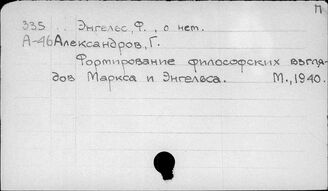 П
335 .. Энгельс, Ф. , о нем.
А-46 Александров, Г.
Формирование философских взгля-
дов Маркса и Энгельса. М., 1940.